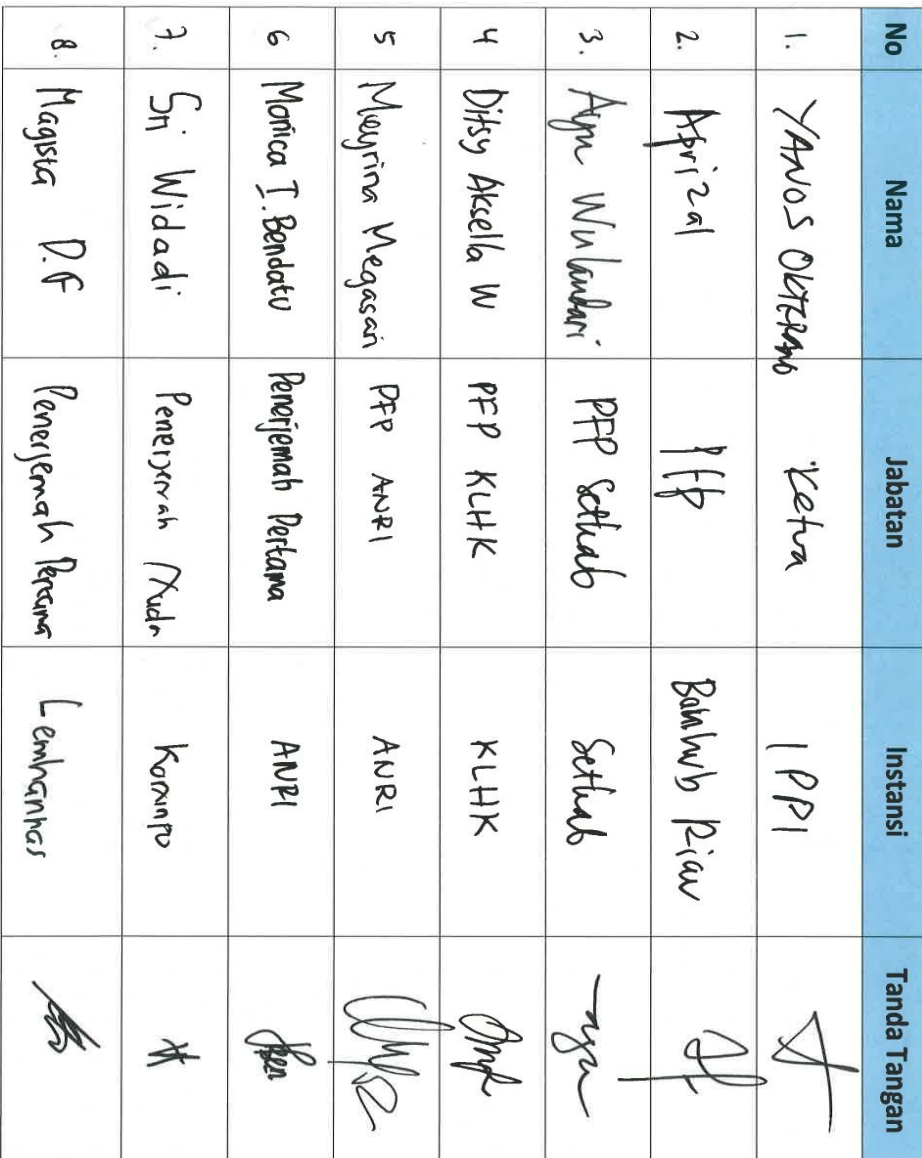 No Nama Jabatan Instansi Tanda Tangan
1. YANOS OKTERANO Ketua IPPI
2. Aprizal PFP Bainhub Riau
3. Ayu Wulandari PFP Setkab Setkab
4 Ditsy Aksella W PFP KLHK KLHK
5 Meyrina Megasari PFP ANRI ANRI
6 Monica I. Bendatu Penerjemah Pertama ANRI
7. Sri Widadi Penerjemah Muda Kominfo
8. Magista D.F Penerjemah Pertama Lemhannas